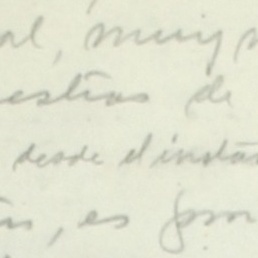 al, muy
estias de
desde el instan
es por